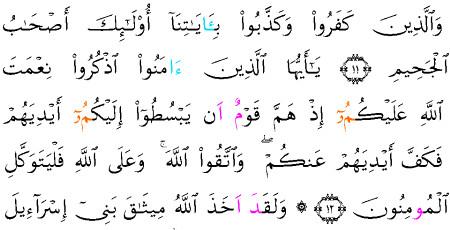 وَٱلَّذِينَ كَفَرُوا۟ وَكَذَّبُوا۟ بِـَٔايَـٰتِنَآ أُو۟لَـٰٓئِكَ أَصْحَـٰبُ
ٱلْجَحِيمِ ۝١١ يَـٰٓأَيُّهَا ٱلَّذِينَ ءَامَنُوا۟ ٱذْكُرُوا۟ نِعْمَتَ
ٱللَّهِ عَلَيْكُمُۥٓ إِذْ هَمَّ قَوْمٌ اَن يَبْسُطُوٓا۟ إِلَيْكُمُۥٓ أَيْدِيَهُمْ
فَكَفَّ أَيْدِيَهُمْ عَنكُمْ ۖ وَٱتَّقُوا۟ ٱللَّهَ ۚ وَعَلَى ٱللَّهِ فَلْيَتَوَكَّلِ
ٱلْمُومِنُونَ ۝١٢ ۞ وَلَقَدَ اَخَذَ ٱللَّهُ مِيثَـٰقَ بَنِىٓ إِسْرَآءِيلَ